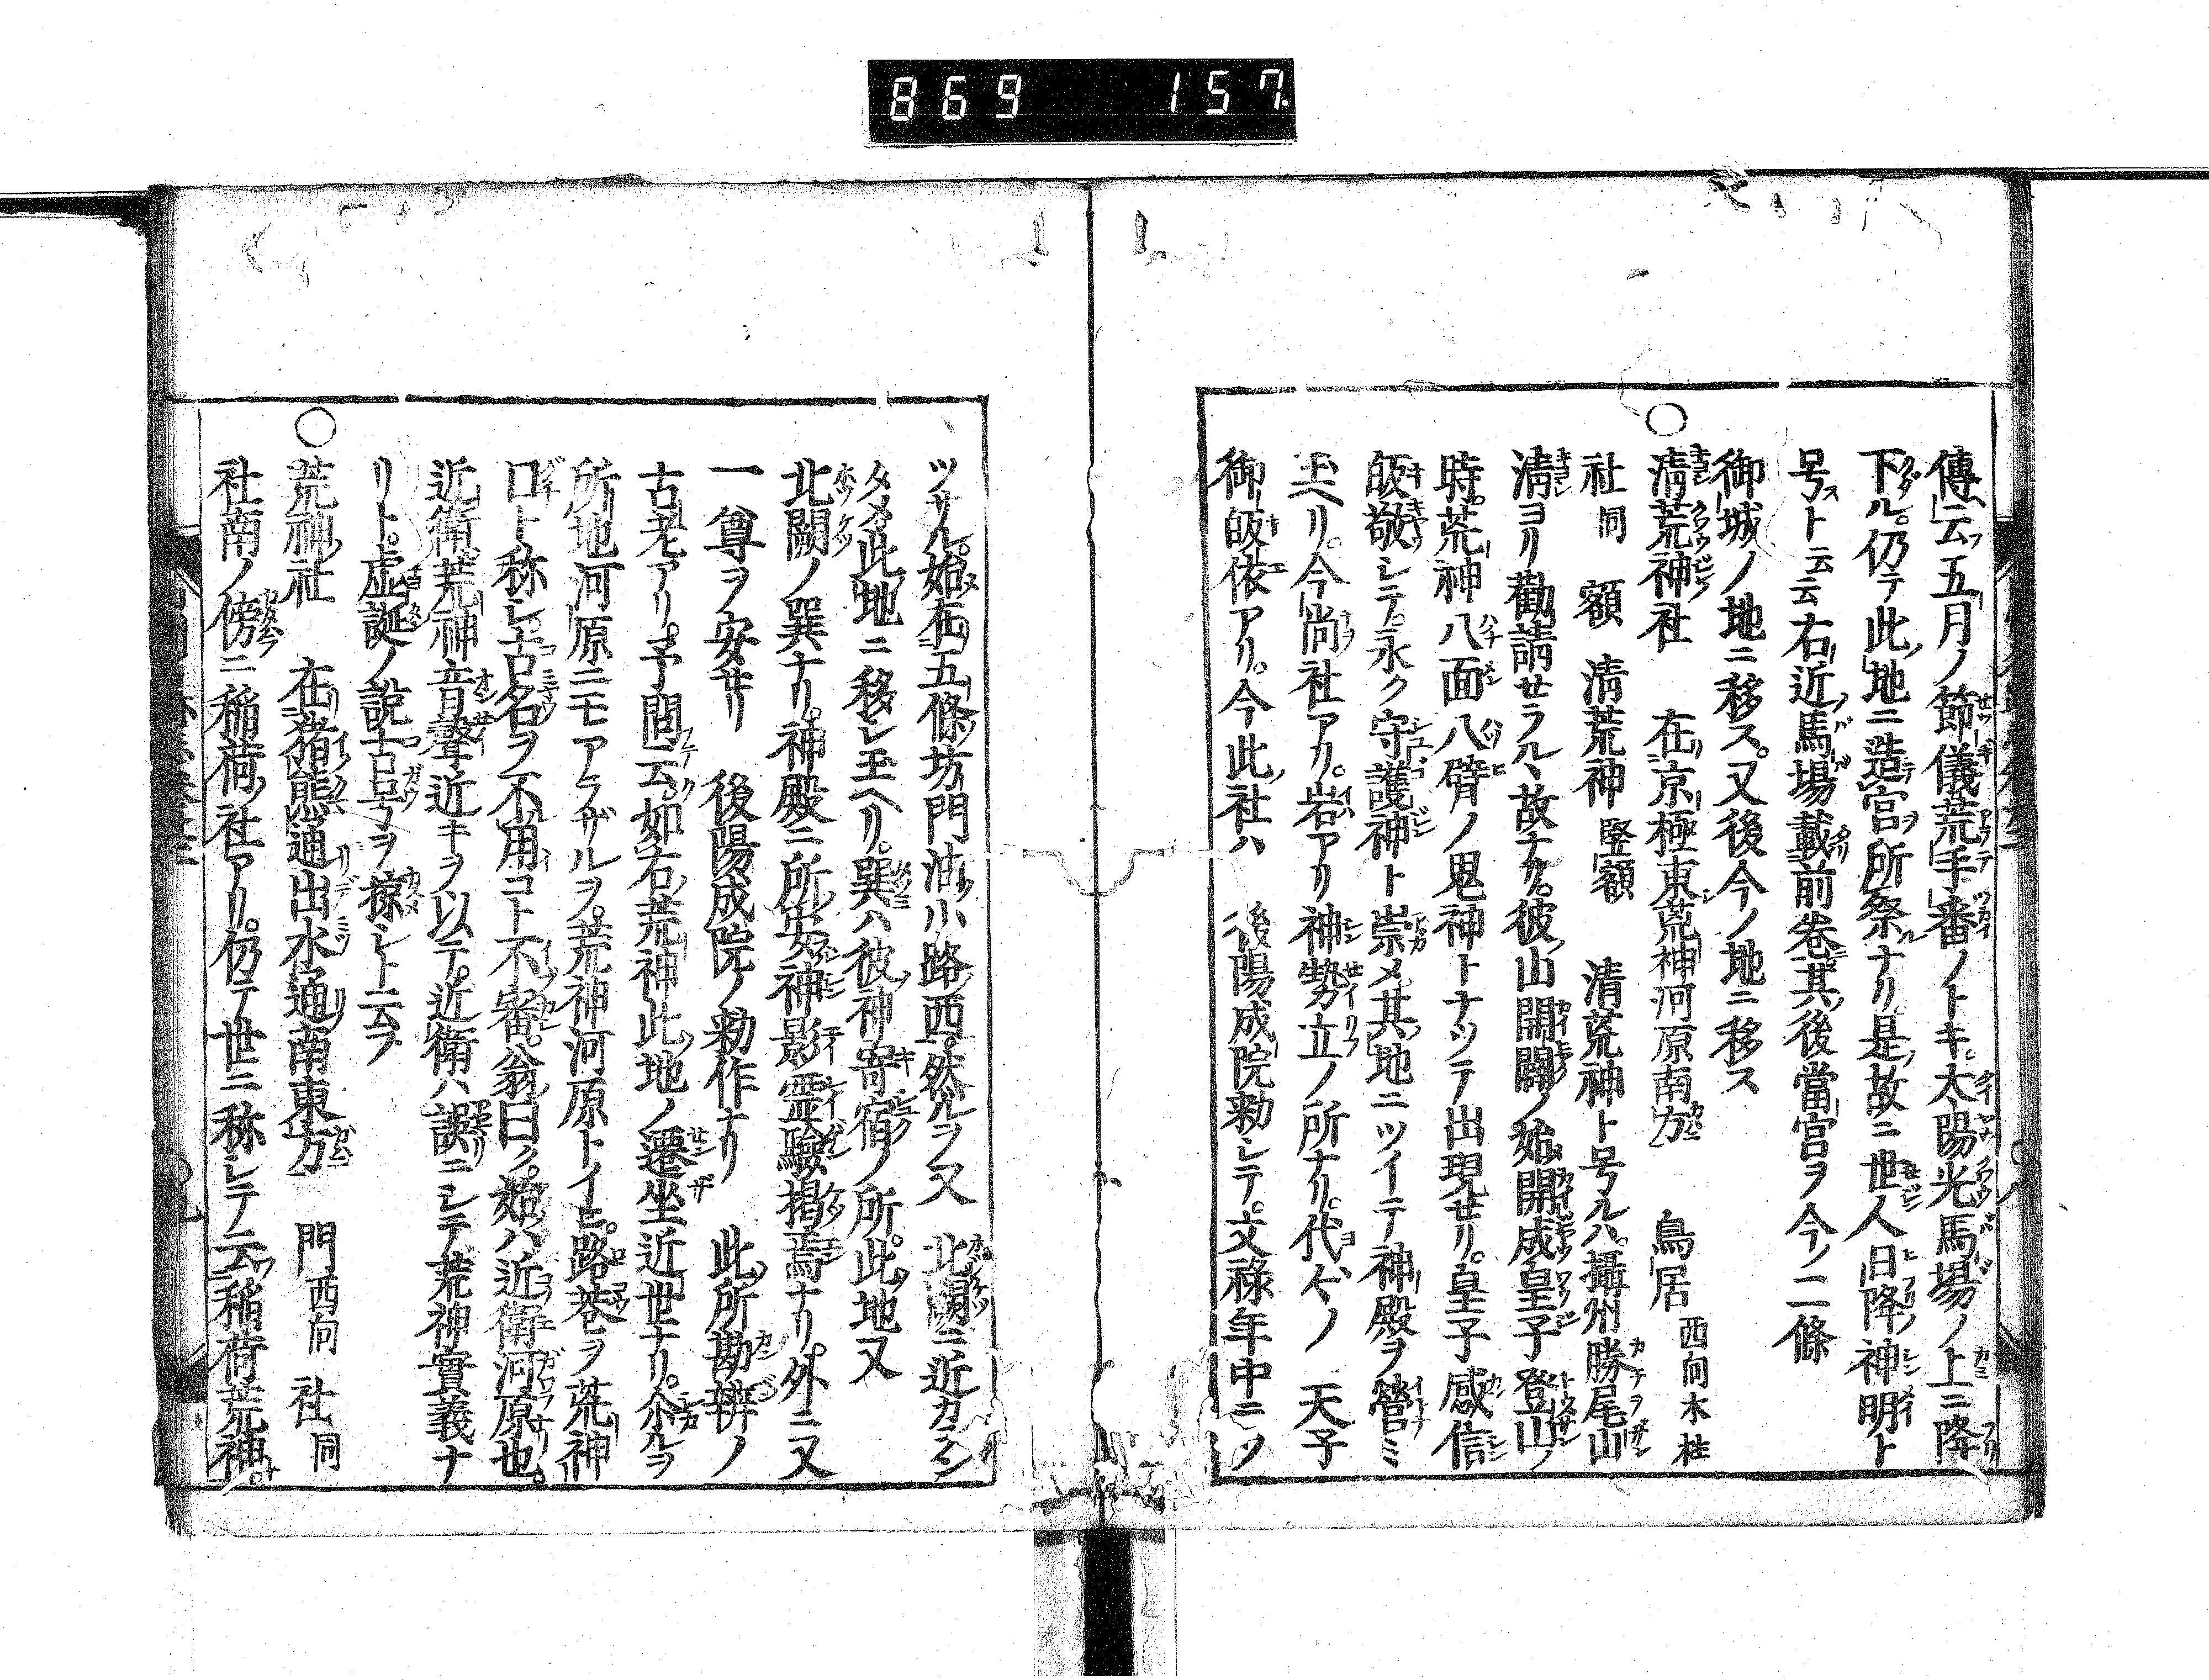 869 157
傳云五月ノ節儀荒手番ノトキ太陽光馬場ノ上ニ降
下ル。仍テ此地ニ造宮所祭ナリ是故ニ世人日降神明ト
号ストニ云右近馬場載前巻其後當宮ヲ今ノ二條
御城ノ地ニ移ス。又後今ノ地ニ移ス
○清荒神社 在京極東荒神河原南方 鳥居 西向木柱
社同 額 清荒神 竪額 清荒神ト号ルハ。攝州勝尾山
清ヨリ勸請セラル、故ナリ。彼山開闢ノ始開成皇子登山ノ
時。荒神八面八臂ノ鬼神トナツテ出現セリ。皇子感信
皈敬シテ。永ク守護神ト崇メ其地ニツイテ神殿ヲ營ミ
玉ヘリ。今尚社アリ。岩アリ神勢立ノ所ナリ。代々ノ 天子
御皈依アリ。今此社ハ 後陽成院勅シテ。文祿年中ニウ
ツサル。始在五條坊門油小路西。然ルヲ又 北闕ニ近カラシ
メタメ此地ニ移シ玉ヘリ。巽ハ彼神寄宿ノ所。此地又
北闕ノ巽ナリ。神殿ニ所安神影霊驗掲焉ナリ。外ニ又
一尊ヲ安セリ 後陽成院ノ勅作ナリ 此所勘辨ノ
古老アリ。予問云。如右荒神此地ノ遷坐近世ナリ。尒ルヲ
所地河原ニモアラザルヲ。荒神河原トイヒ。路巷ヲ荒神
口ト称シ古名ヲ不用コト不審。翁曰ク。始ハ近衛河原也。
近衛荒神音聲近キヲ以テ。近衛ハ誤ニシテ荒神實義ナ
リト。虚誕ノ説古号ヲ掠シト云フ
○荒神社 在猪熊通出水通南東方 門西向 社同
社南ノ傍ニ稲荷社アリ。仍テ世ニ称シテ云稲荷荒神。